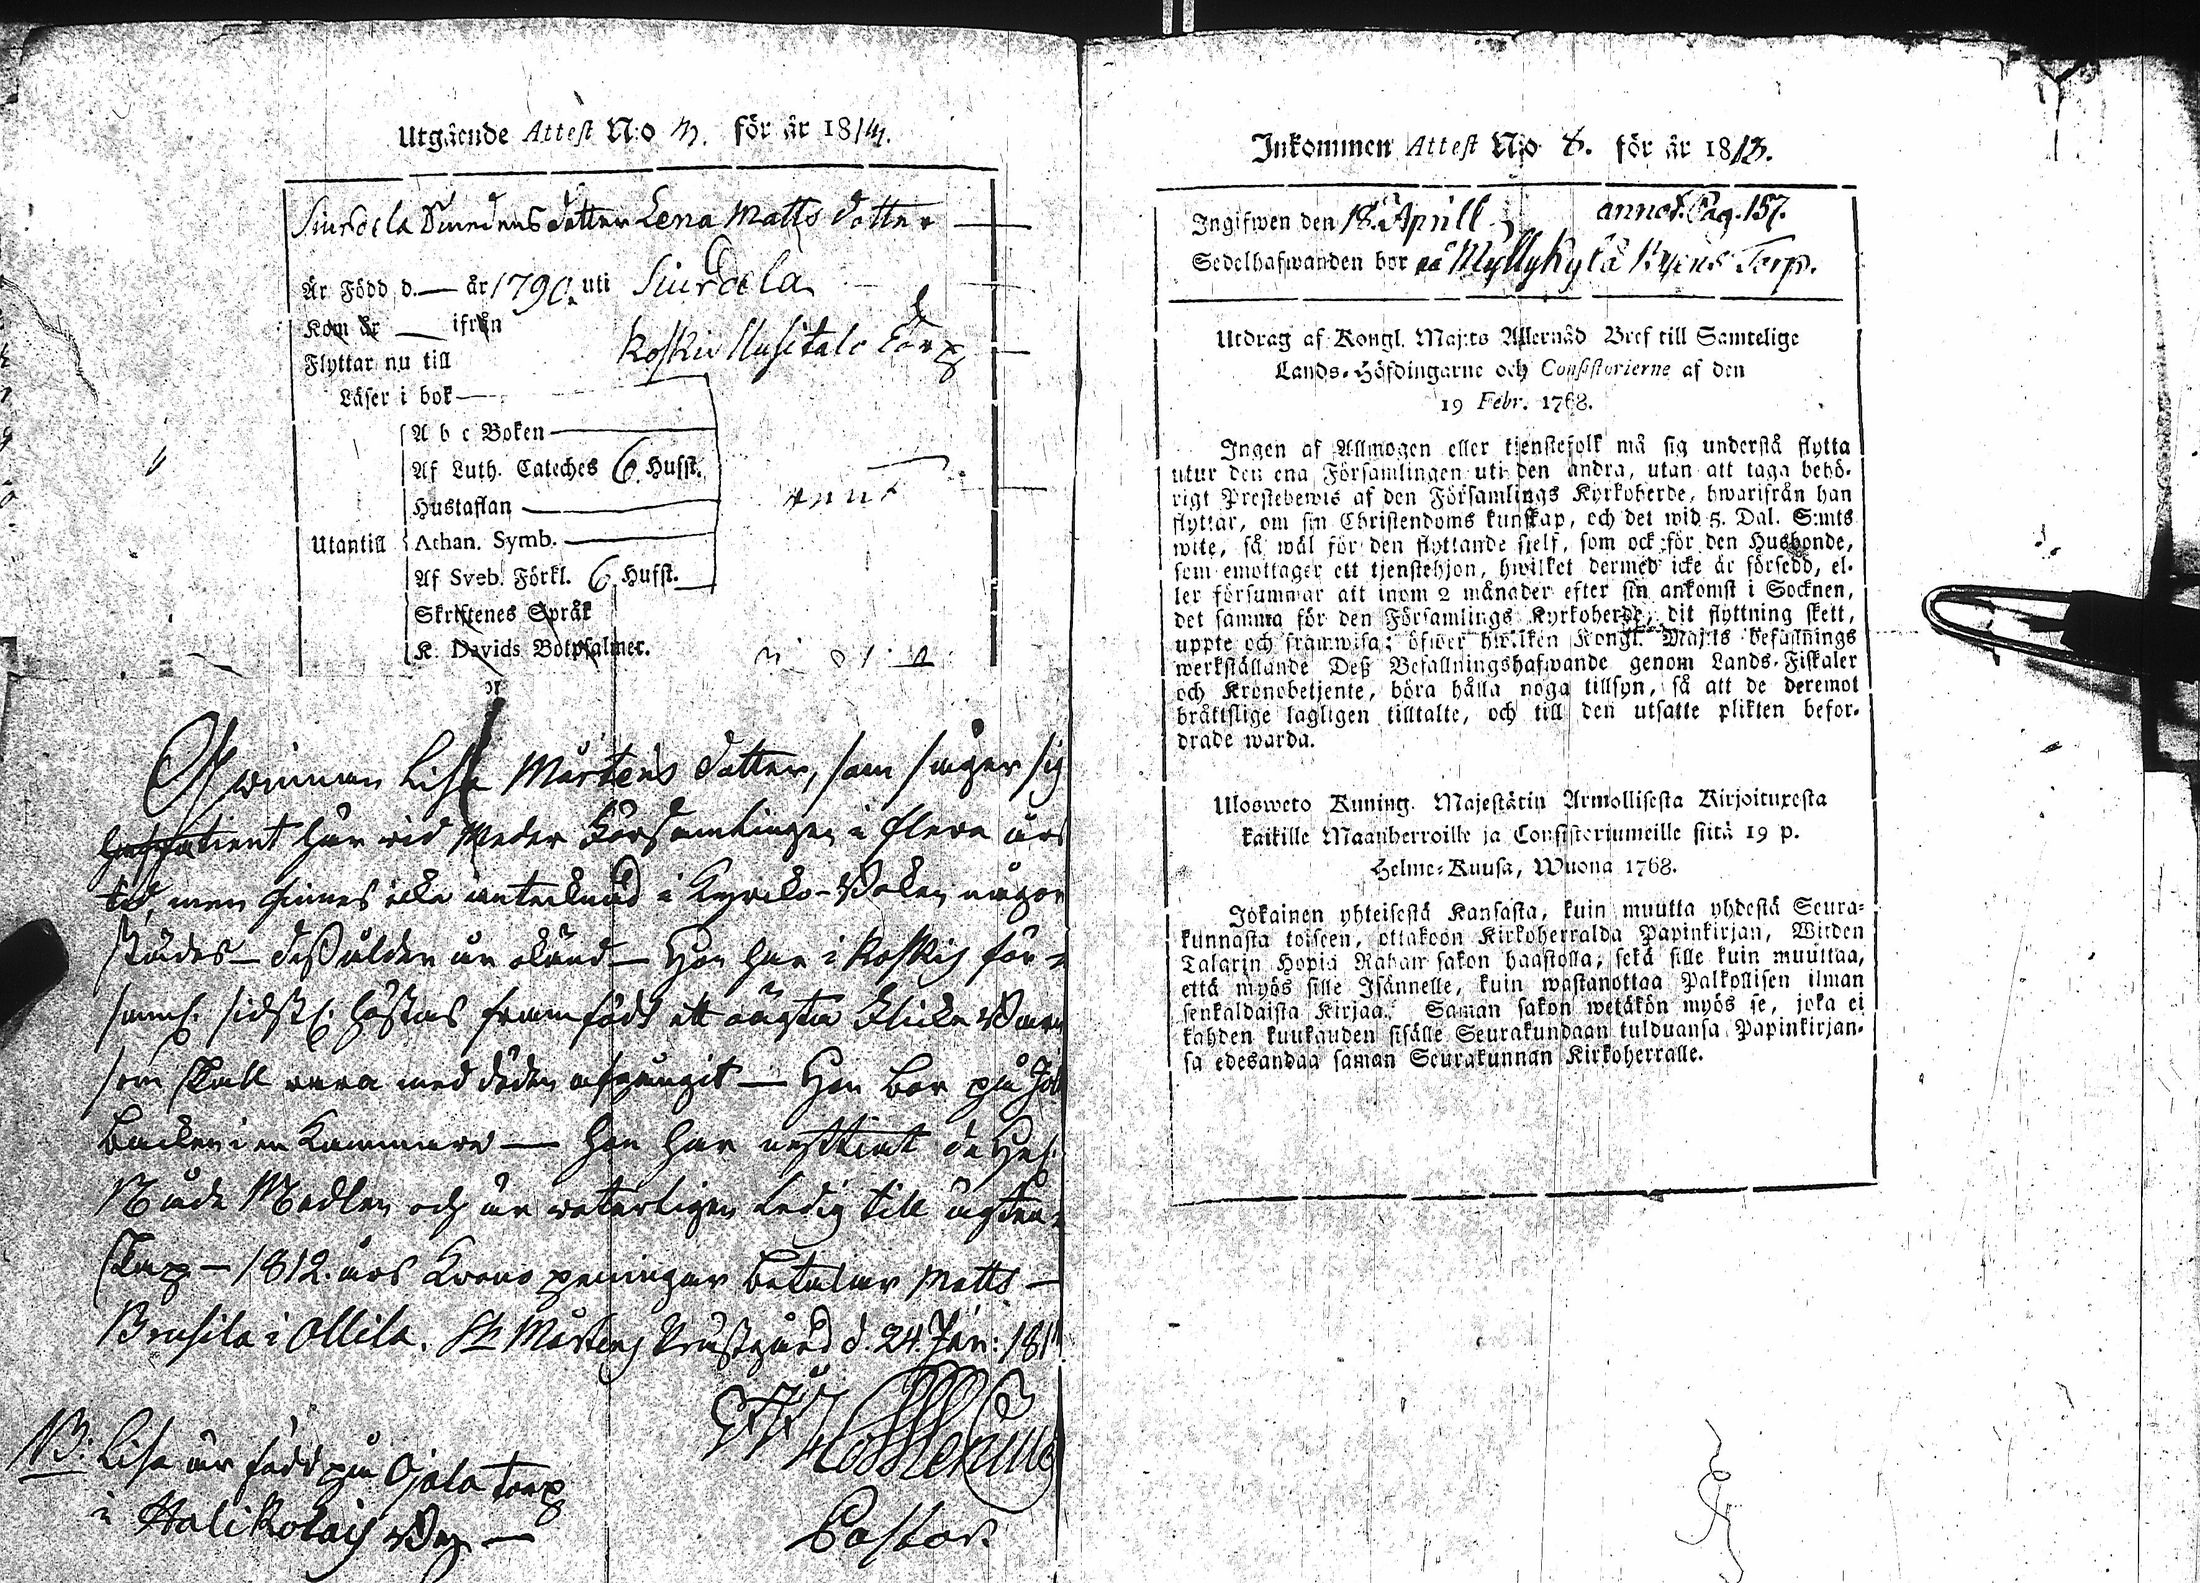 Utgående Attest N:o 3. för år 1814.
Dotter Lena Matts dotter
Är Född d. — år 1790. uti
Kom år — ifrån
Flyttar nu till Koskis Torp
Läser i bok
A b c Boken
Af Luth. Cateches 6 Hufst.
Hustaflan
Utantill Athan. Symb.
Af Sveb. Förkl. 6 Hufst.
Skriftenes Språk
K. Davids Botpsalmer.
Qwinnan Lisa Mårtens dotter, som säger sig
tient här wid Meder Församlingen i flere års
tid, men finnes icke antecknad i Kyrcko-Boken någor
städes — ålder är okänd — Hon har i Koskis för-
saml. sidstl. höstas framfödt ett oägta Flicko Barn
som skall wara med döden afgångit — Hon bor på
backen i en Kammare — hon har
Nåde Medlen och är weterligen ledig till ägten-
skap — 1812. års Krono peningar betalar Matts —
i Ollila. St Mårtens Prästgård d. 24. Jan: 181
Pastor.
NB: Lisa är född på Ojala torp
i Halikko
Inkommen Attest N:o 8. för år 1813.
Ingifwen den 18. Aprill annot. Pag. 157.
Sedelhafwanden bor på Myllykylä Torp.
Utdrag af Kongl. Maj:ts Allernåd Bref till Samtelige
Lands-Höfdingarne och Consistorierne af den
19 Febr. 1768.
Ingen af Allmogen eller tjenstefolk må sig understå flytta
utur den ena Församlingen uti den andra, utan att taga behö-
rigt Prestebewis af den Församlings Kyrkoherde, hwarifrån han
flyttar, om sin Christendoms kunskap, och det wid 5. Dal. S:mts
wite, så wäl för den flyttande sjelf, som ock för den Husbonde,
som emottager ett tjenstehjon, hwilket dermed icke är försedd, el-
ler försummar att inom 2 månader efter sin ankomst i Socknen,
det samma för den Församlings Kyrkoherde, dit flyttning skett,
uppte och framwisa; öfwer hwilken Kongl. Maj:ts befallnings
werkställande Deß Befallningshafwande genom Lands-Fiskaler
och Kronobetjente, böra hålla noga tillsyn, så att de deremot
bråttslige lagligen tilltalte, och till den utsatte plikten befor-
drade warda.
Ulosweto Kuning. Majestätin Armollisesta Kirjoituxesta
kaikille Maanherroille ja Consistoriumeille siitä 19 p.
Helme-Kuusa, Wuona 1768.
Jokainen yhteisestä Kansasta, kuin muutta yhdestä Seura-
kunnasta toiseen, ottakoon Kirkoherralda Papinkirjan, Wiiden
Talarin Hopia Rahan sakon haastolla, sekä sille kuin muuttaa,
että myös sille Isännelle, kuin wastanottaa Palkollisen ilman
senkaldaista Kirjaa. Saman sakon wetäkön myös se, joka ei
kahden kuukauden sisälle Seurakundaan tulduansa Papinkirjan-
sa edesandaa saman Seurakunnan Kirkoherralle.